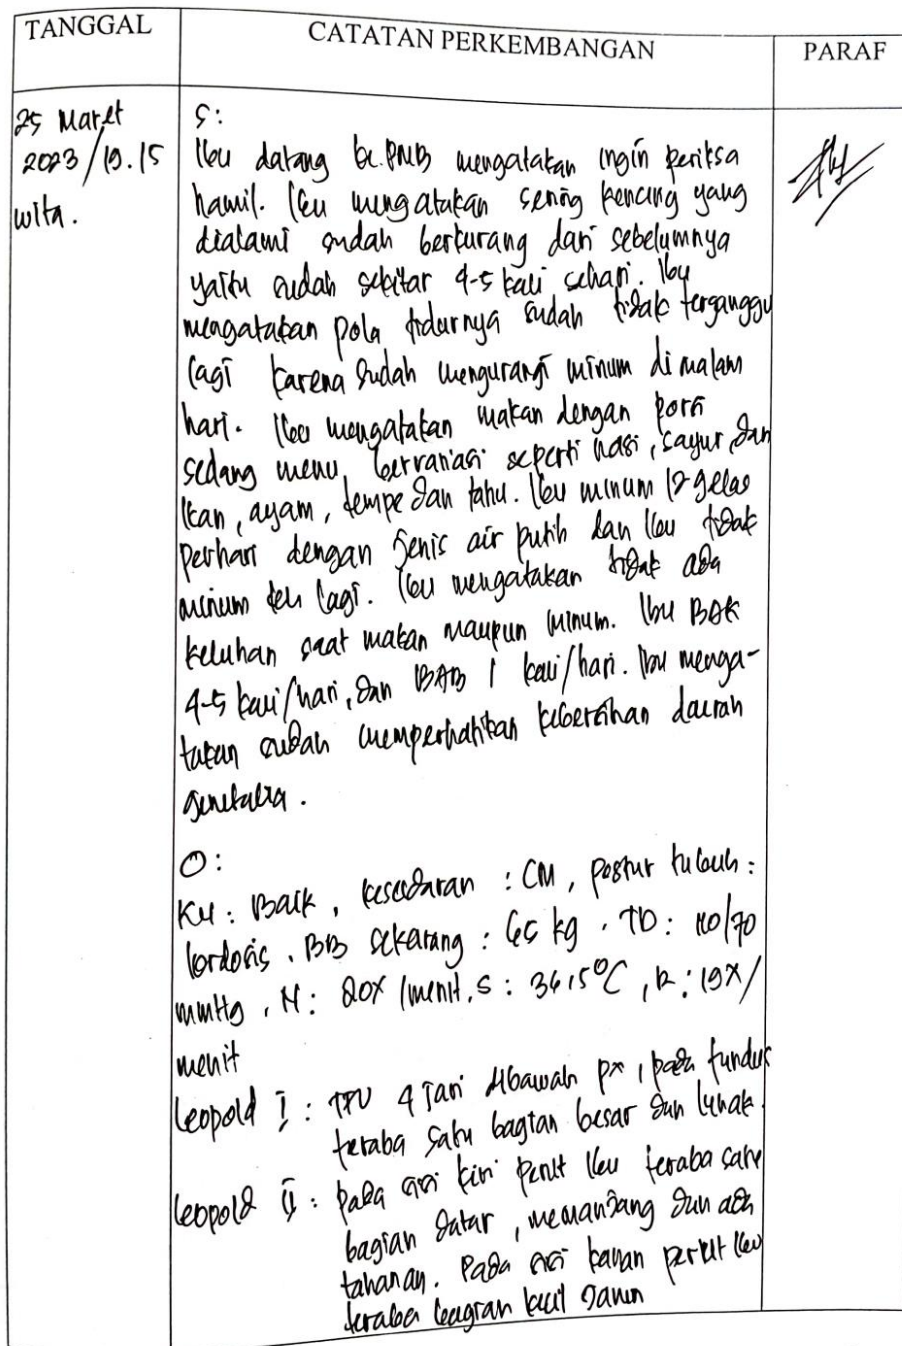 TANGGAL CATATAN PERKEMBANGAN PARAF
25 Maret
2023/19.15
wita.
S:
Ibu datang ke PMB mengatakan ingin periksa
hamil. Ibu mengatakan sering kencing yang
dialami sudah berkurang dari sebelumnya
yaitu sudah sekitar 4-5 kali sehari. Ibu
mengatakan pola tidurnya sudah tidak terganggu
lagi karena sudah mengurangi minum di malam
hari. Ibu mengatakan makan dengan porsi
sedang menu bervariasi seperti nasi, sayur, dan
ikan, ayam, tempe dan tahu. Ibu minum 12 gelas
perhari dengan jenis air putih dan Ibu tidak
minum teh lagi. Ibu mengatakan tidak ada
keluhan saat makan maupun minum. Ibu BAK
4-5 kali/hari, dan BAB 1 kali/hari. Ibu menga-
takan sudah memperhatikan kebersihan daerah
genetalia.
O:
KU: Baik, kesadaran : CM, postur tubuh :
lordosis. BB sekarang : 65 kg. TD: 110/70
mmHg, N: 80x/menit, S: 36,5°C, R: 19x/
menit
Leopold I : TFU 4 jari dibawah px, pada fundus
teraba satu bagian besar dan lunak.
Leopold II : Pada sisi kiri perut Ibu teraba satu
bagian datar, memanjang dan ada
tahanan. Pada sisi kanan perut Ibu
teraba bagian kecil janin